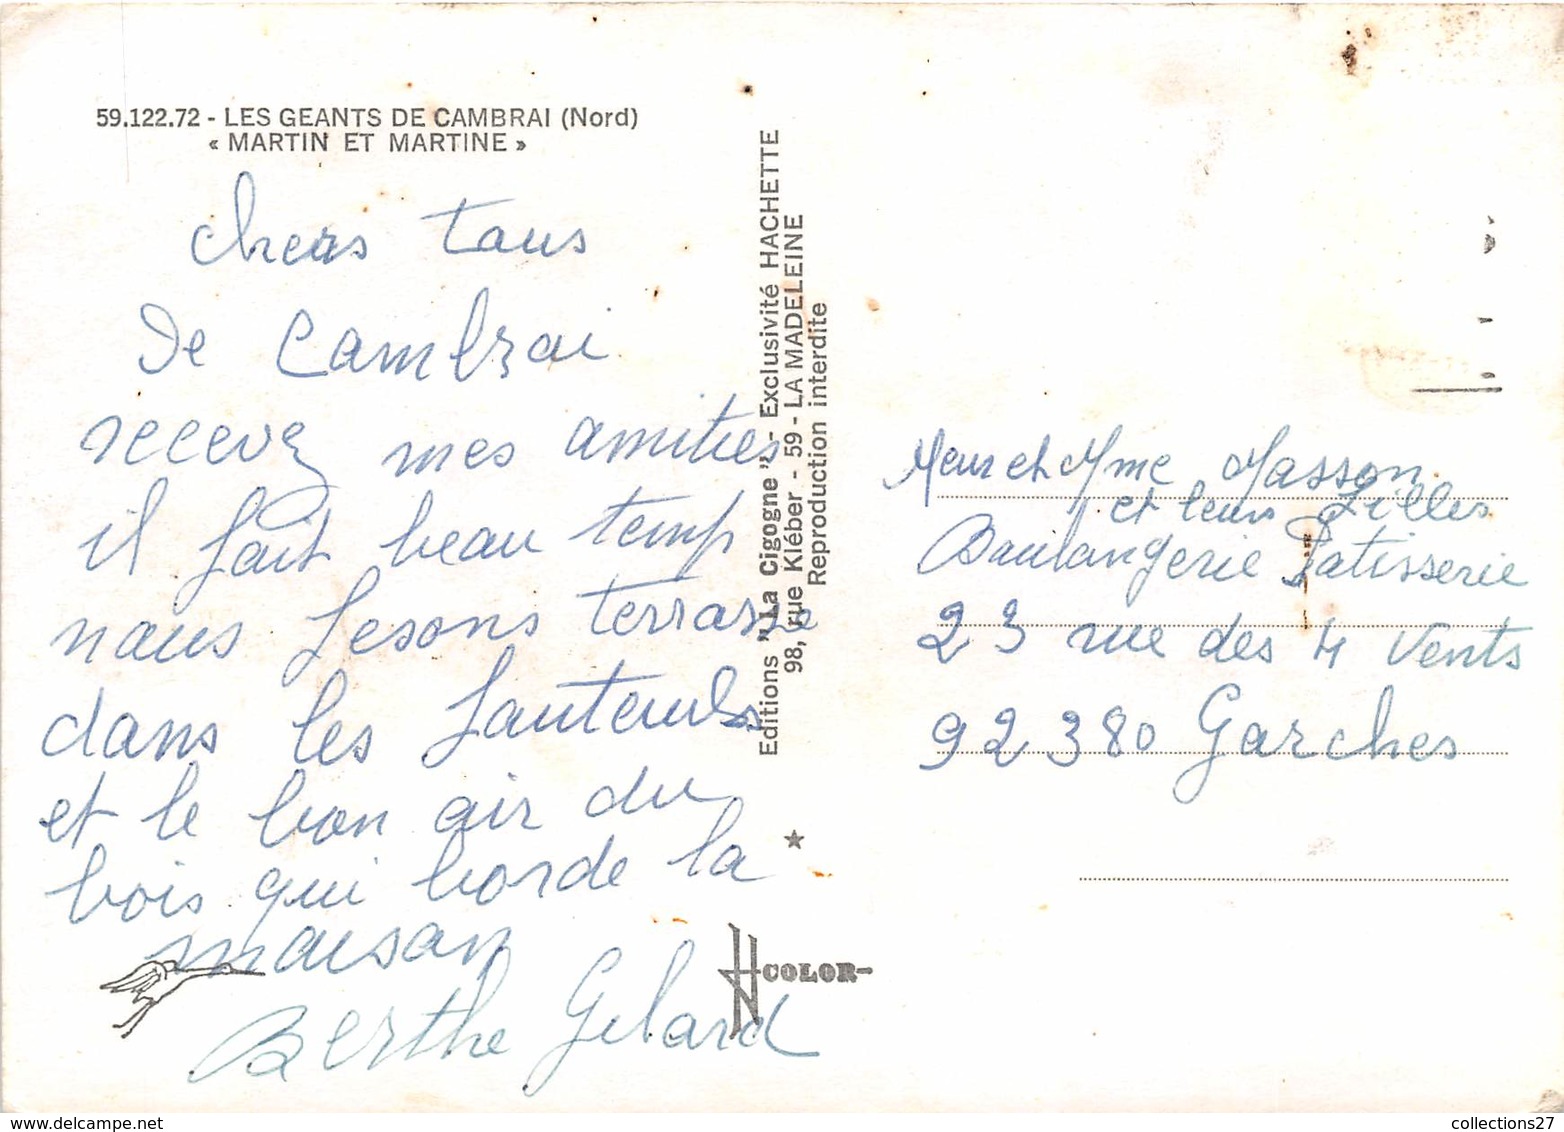 59.122.72 - LES GEANTS DE CAMBRAI (Nord)
« MARTIN ET MARTINE »
chers tous
De Cambrai
recevez mes amities
il fait beau temp
nous fesons terrasse
dans les fauteuils
et le bon air du
bois qui borde la
maison
Berthe Gelard
Editions "La Cigogne" - Exclusivité HACHETTE
98, rue Kléber - 59 - LA MADELEINE
Reproduction interdite
COLOR
Meur et Mme Masson
et leurs filles
Boulangerie Patisserie
23 rue des 4 vents
92380 Garches
www.delcampe.net
collections27